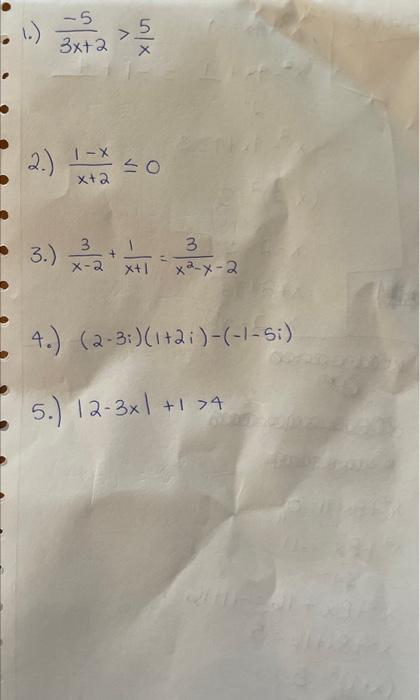 1.) -5/(3x+2) > 5/x
2.) (1-x)/(x+2) ≤ 0
3.) 3/(x-2) + 1/(x+1) = 3/(x²-x-2)
4.) (2-3i)(1+2i)-(-1-5i)
5.) |2-3x| +1 >4